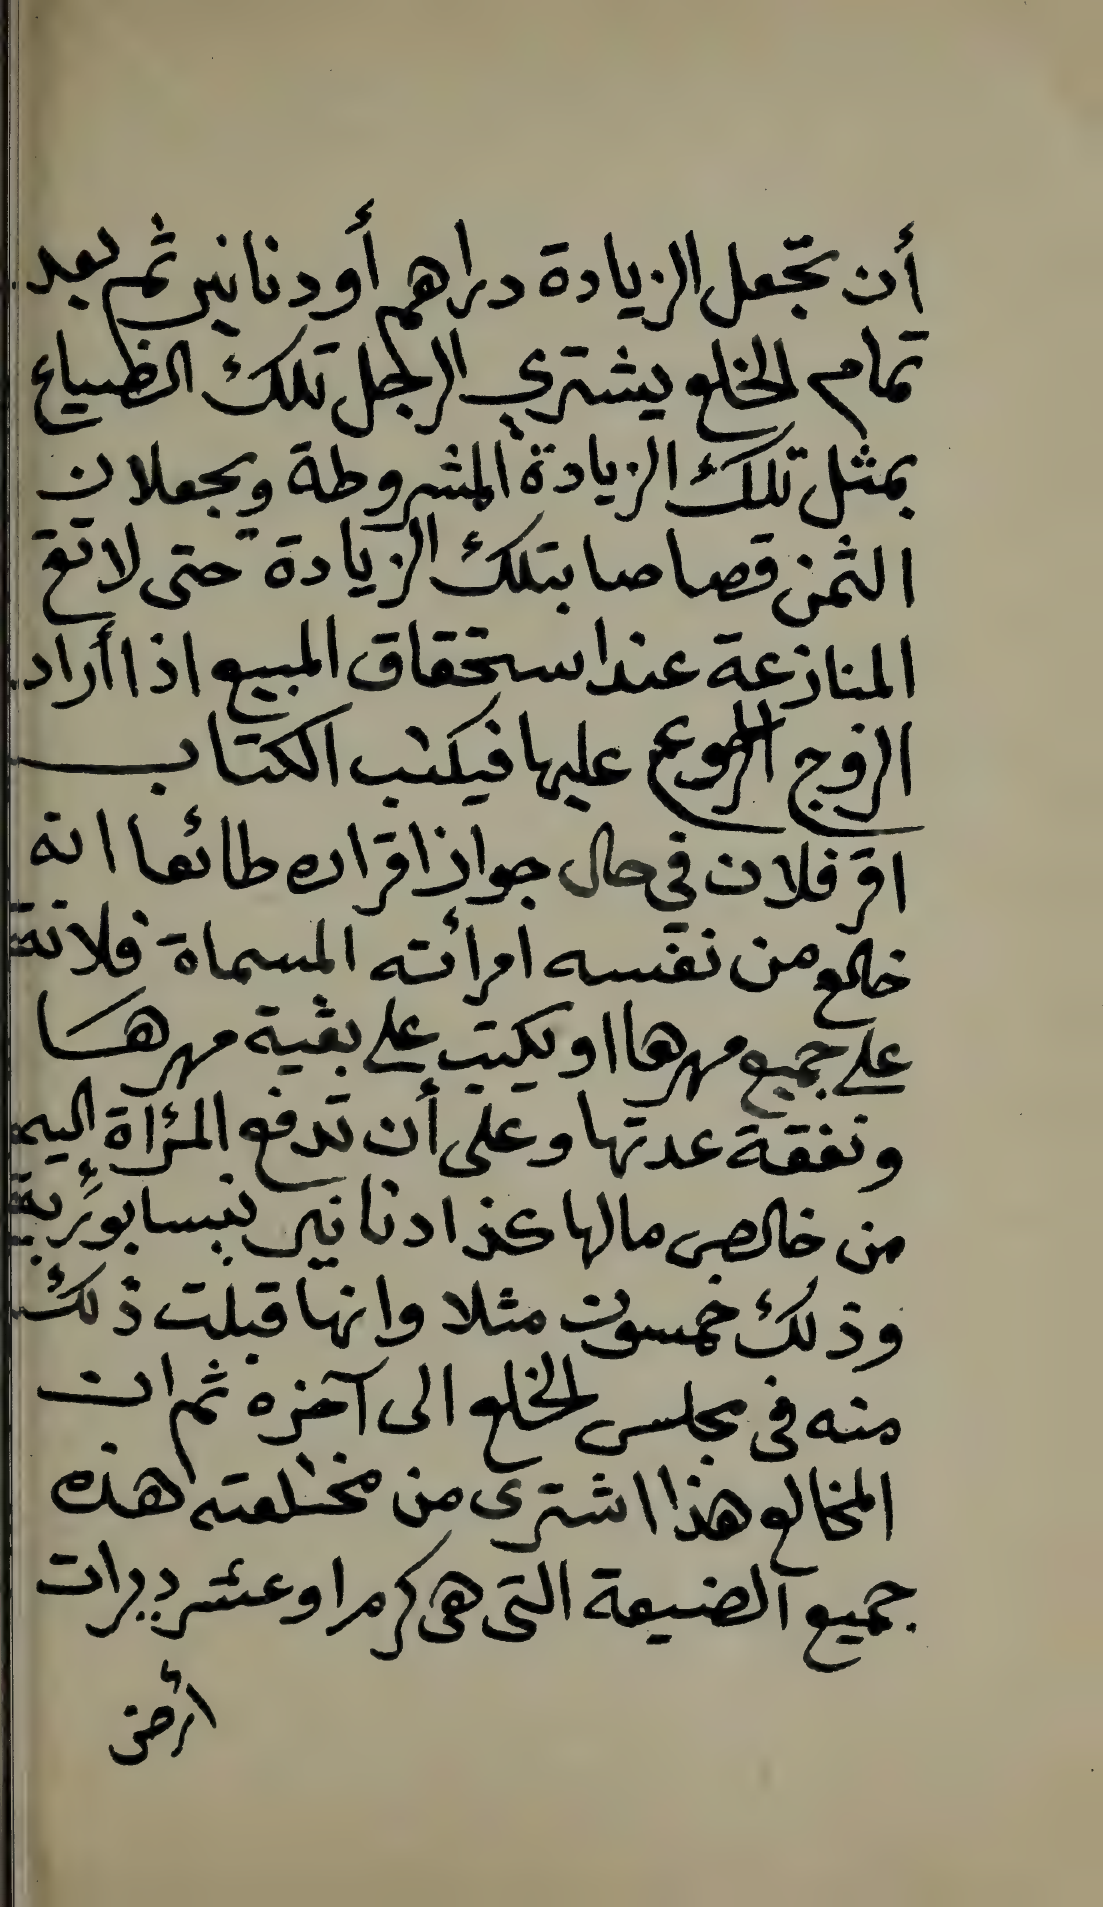 أن تجعل الزيادة دراهم أو دنانير ثم بعد
تمام الخلع يشتري الرجل تلك الظياع
بمثل تلك الزيادة المشروطة ويجعلان
الثمن قصاصا بتلك الزيادة حتى لا تقع
المنازعة عند استحقاق المبيع اذا أراد
الزوج الرجوع عليها فيكتب الكتاب
اقر فلان في حال جواز اقراره طائعا انه
خالع من نفسه امرأته المسماة فلانة
على جميع مهرها او يكتب على بقية مهرها
ونفقة عدتها وعلى أن تدفع المرأة اليه
من خالص مالها كذا دنانير نيسابورية
وذلك خمسون مثلا وانها قبلت ذلك
منه في مجلس الخلع الى آخره ثم ان
المخالع هذا اشترى من مختلعته هذه
جميع الضيعة التي هي كرم او عشر دبرات
أرض